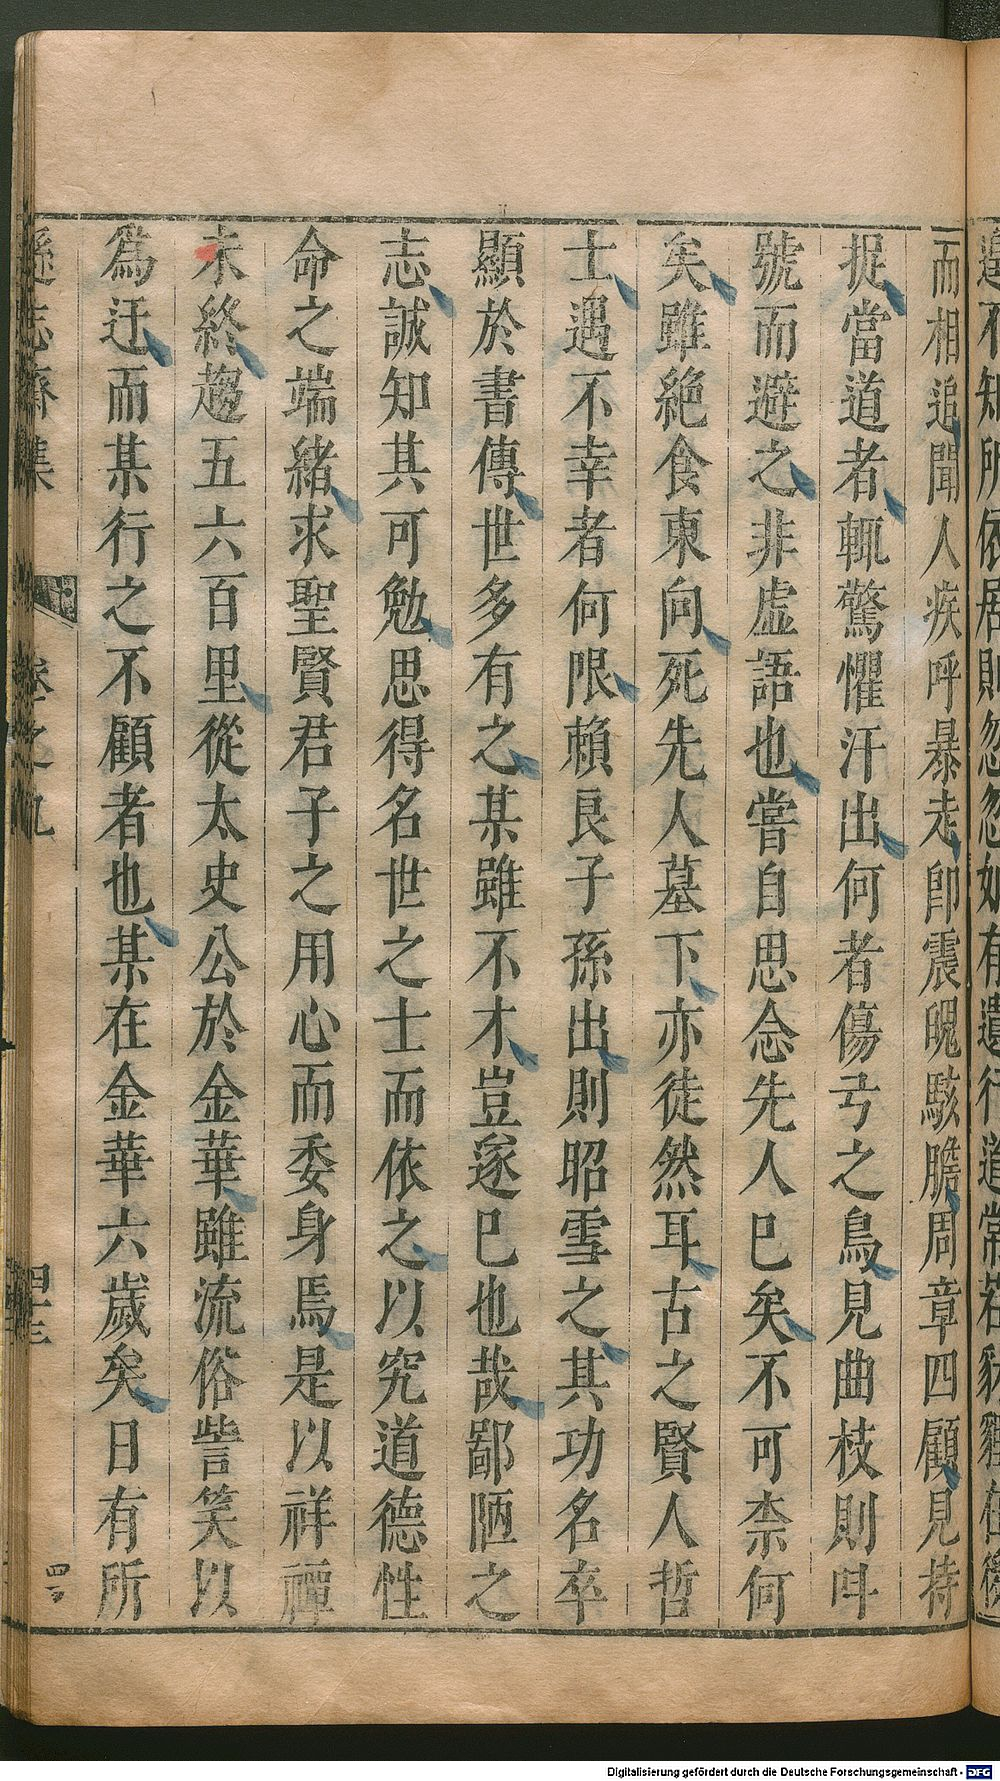 而相追聞人疾呼暴走卽震魄駭膽周章四顧見持
捉當道者輒驚懼汗出何者傷弓之鳥見曲枝則叫
號而避之非虛語也嘗自思念先人已矣不可柰何
矣雖絶食東向死先人墓下亦徒然耳古之賢人哲
士遇不幸者何限賴良子孫出則昭雪之其功名卒
顯於書傳世多有之某雖不才豈遂已也哉鄙陋之
志誠知其可勉思得名世之士而依之以究道德性
命之端緒求聖賢君子之用心而委身焉是以祥禫
未終趨五六百里從太史公於金華雖流俗訾笑以
爲迂而某行之不顧者也某在金華六歲矣日有所
遜志齋集
卷之九
四十三
Digitalisierung gefördert durch die Deutsche Forschungsgemeinschaft - DFG